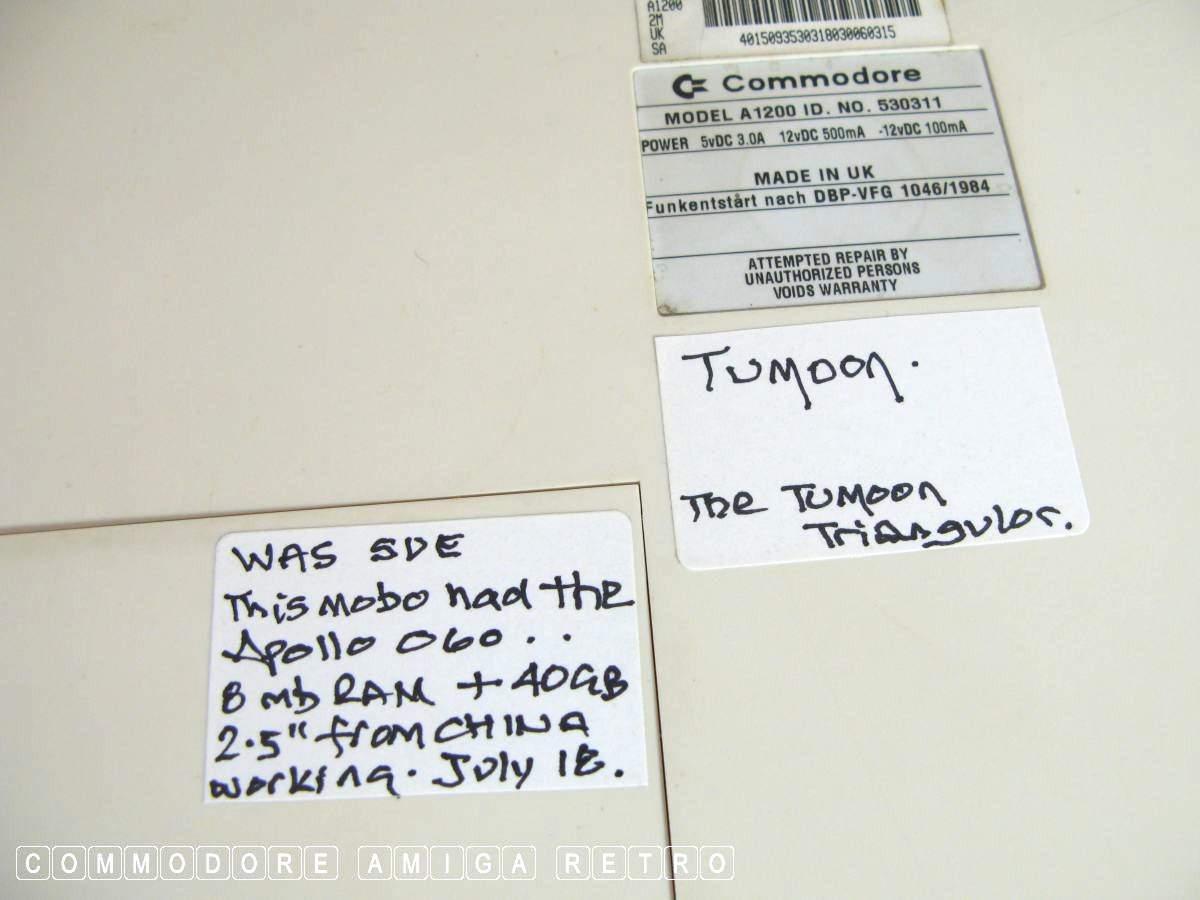 A1200
2M
UK
SA
4015093530318030060315
Commodore
MODEL A1200 ID. NO. 530311
POWER 5vDC 3.0A 12vDC 500mA -12vDC 100mA
MADE IN UK
Funkentstårt nach DBP-VFG 1046/1984
ATTEMPTED REPAIR BY
UNAUTHORIZED PERSONS
VOIDS WARRANTY
TUMOON.
The TUMOON
Triangulor.
WAS SDE
This mobo had the
Apollo 060 . .
8 mb RAM + 40GB
2.5" from CHINA
working. July 18.
COMMODORE AMIGA RETRO